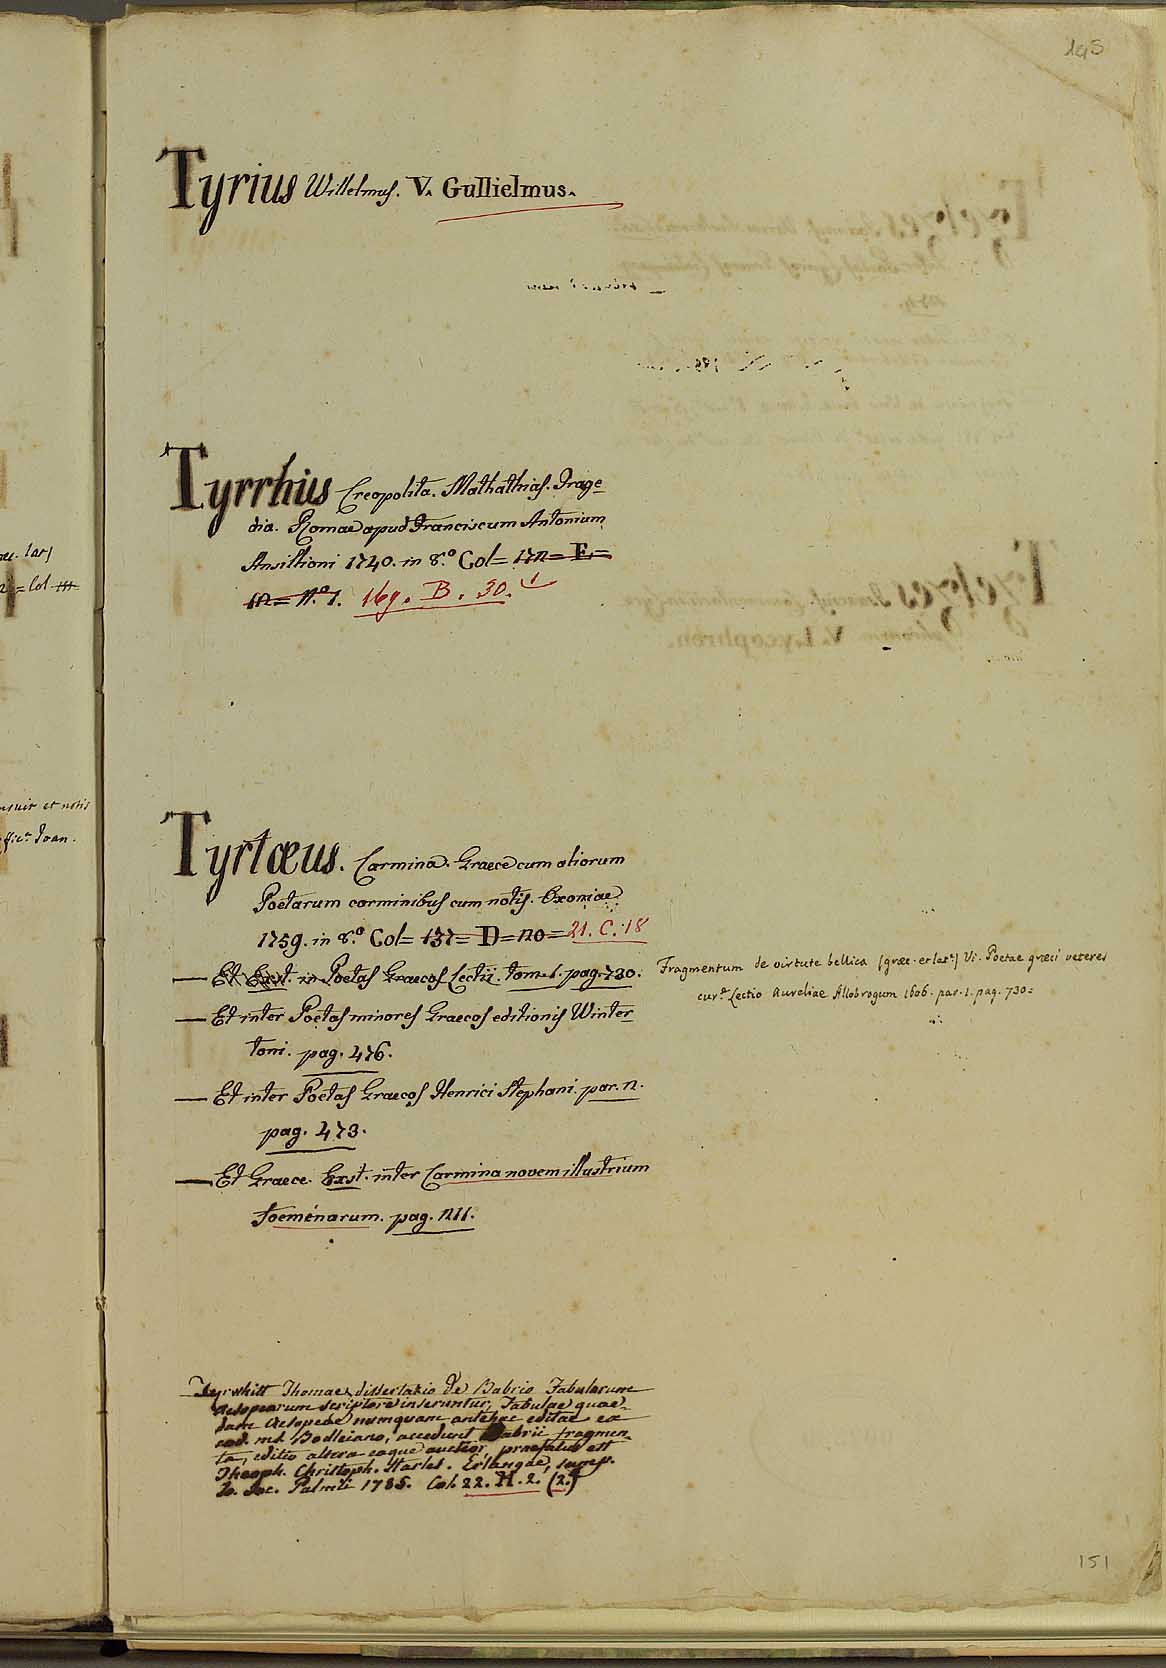 195
Tyrius Willelmus. V. Gullielmus.
Tyrrhius Creopolita. Mathathias. Trage=
dia. Romae apud Franciscum Antonium
Ansillioni 1740. in 8.º Col= 172= E=
m= N.º 1. 169. B. 30.
Tyrtæus. Carmina. Graece cum aliorum
Poetarum carminibus cum notis. Oxoniae
1759. in 8.º Col= 137= D= no= 21. C. 18
— Et Exst. in Poetas Graecos Lectii. tom. 1. pag. 730.
Fragmentum de virtute bellica (græc. et lat.) Vi. Poetae græci veteres
cur.ª Lectio Aureliae Allobrogum 1606. par. 1. pag. 730=
— Et inter Poetas minores Graecos editionis Winter=
toni. pag. 476.
— Et inter Poetas Graecos Henrici Stephani. par. n.
pag. 473.
— Et Graece. Exst. inter Carmina novem illustrium
foeminarum. pag. 211.
Tyrwhitt Thomae dissertatio de Babrio Fabularum
Aesopearum scriptore inseruntur, Fabulae quae=
dam Aesopeae numquam antehac editae ex
cod. ms. Bodleiano, accedunt Babrii fragmen=
ta, editio altera eaque auctior, praefatus est
Theoph. Christoph. Harles. Erlangae, sump.
Jo. Jac. Palmii 1785. Col. 22. H. 2. (2.)
151